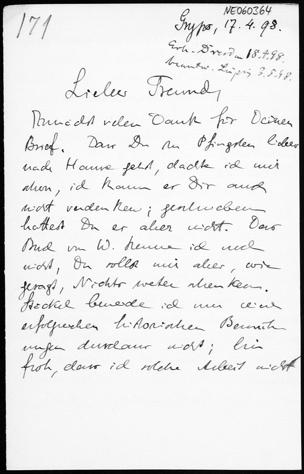 171
NE060364
Gryps, 17.4.98.
Erh. Dresd. 18.4.98.
beantw. Leipzig 9.5.98.
Lieber Freund,
Zunächst vielen Dank für Deinen
Brief. Dass Du zu Pfingsten lieber
nach Hause gehst, dachte ich mir
schon, ich kann es Dir auch
nicht verdenken; geschrieben
hattest Du es aber nicht. Das
Bild von W. kenne ich noch
nicht, Du sollst mir aber, wie
gesagt, Nichts weiter schenken.
beneide ich um seine
erfolgreichen historischen Bemüh
ungen durchaus nicht; bin
froh, dass ich solche Arbeit nicht